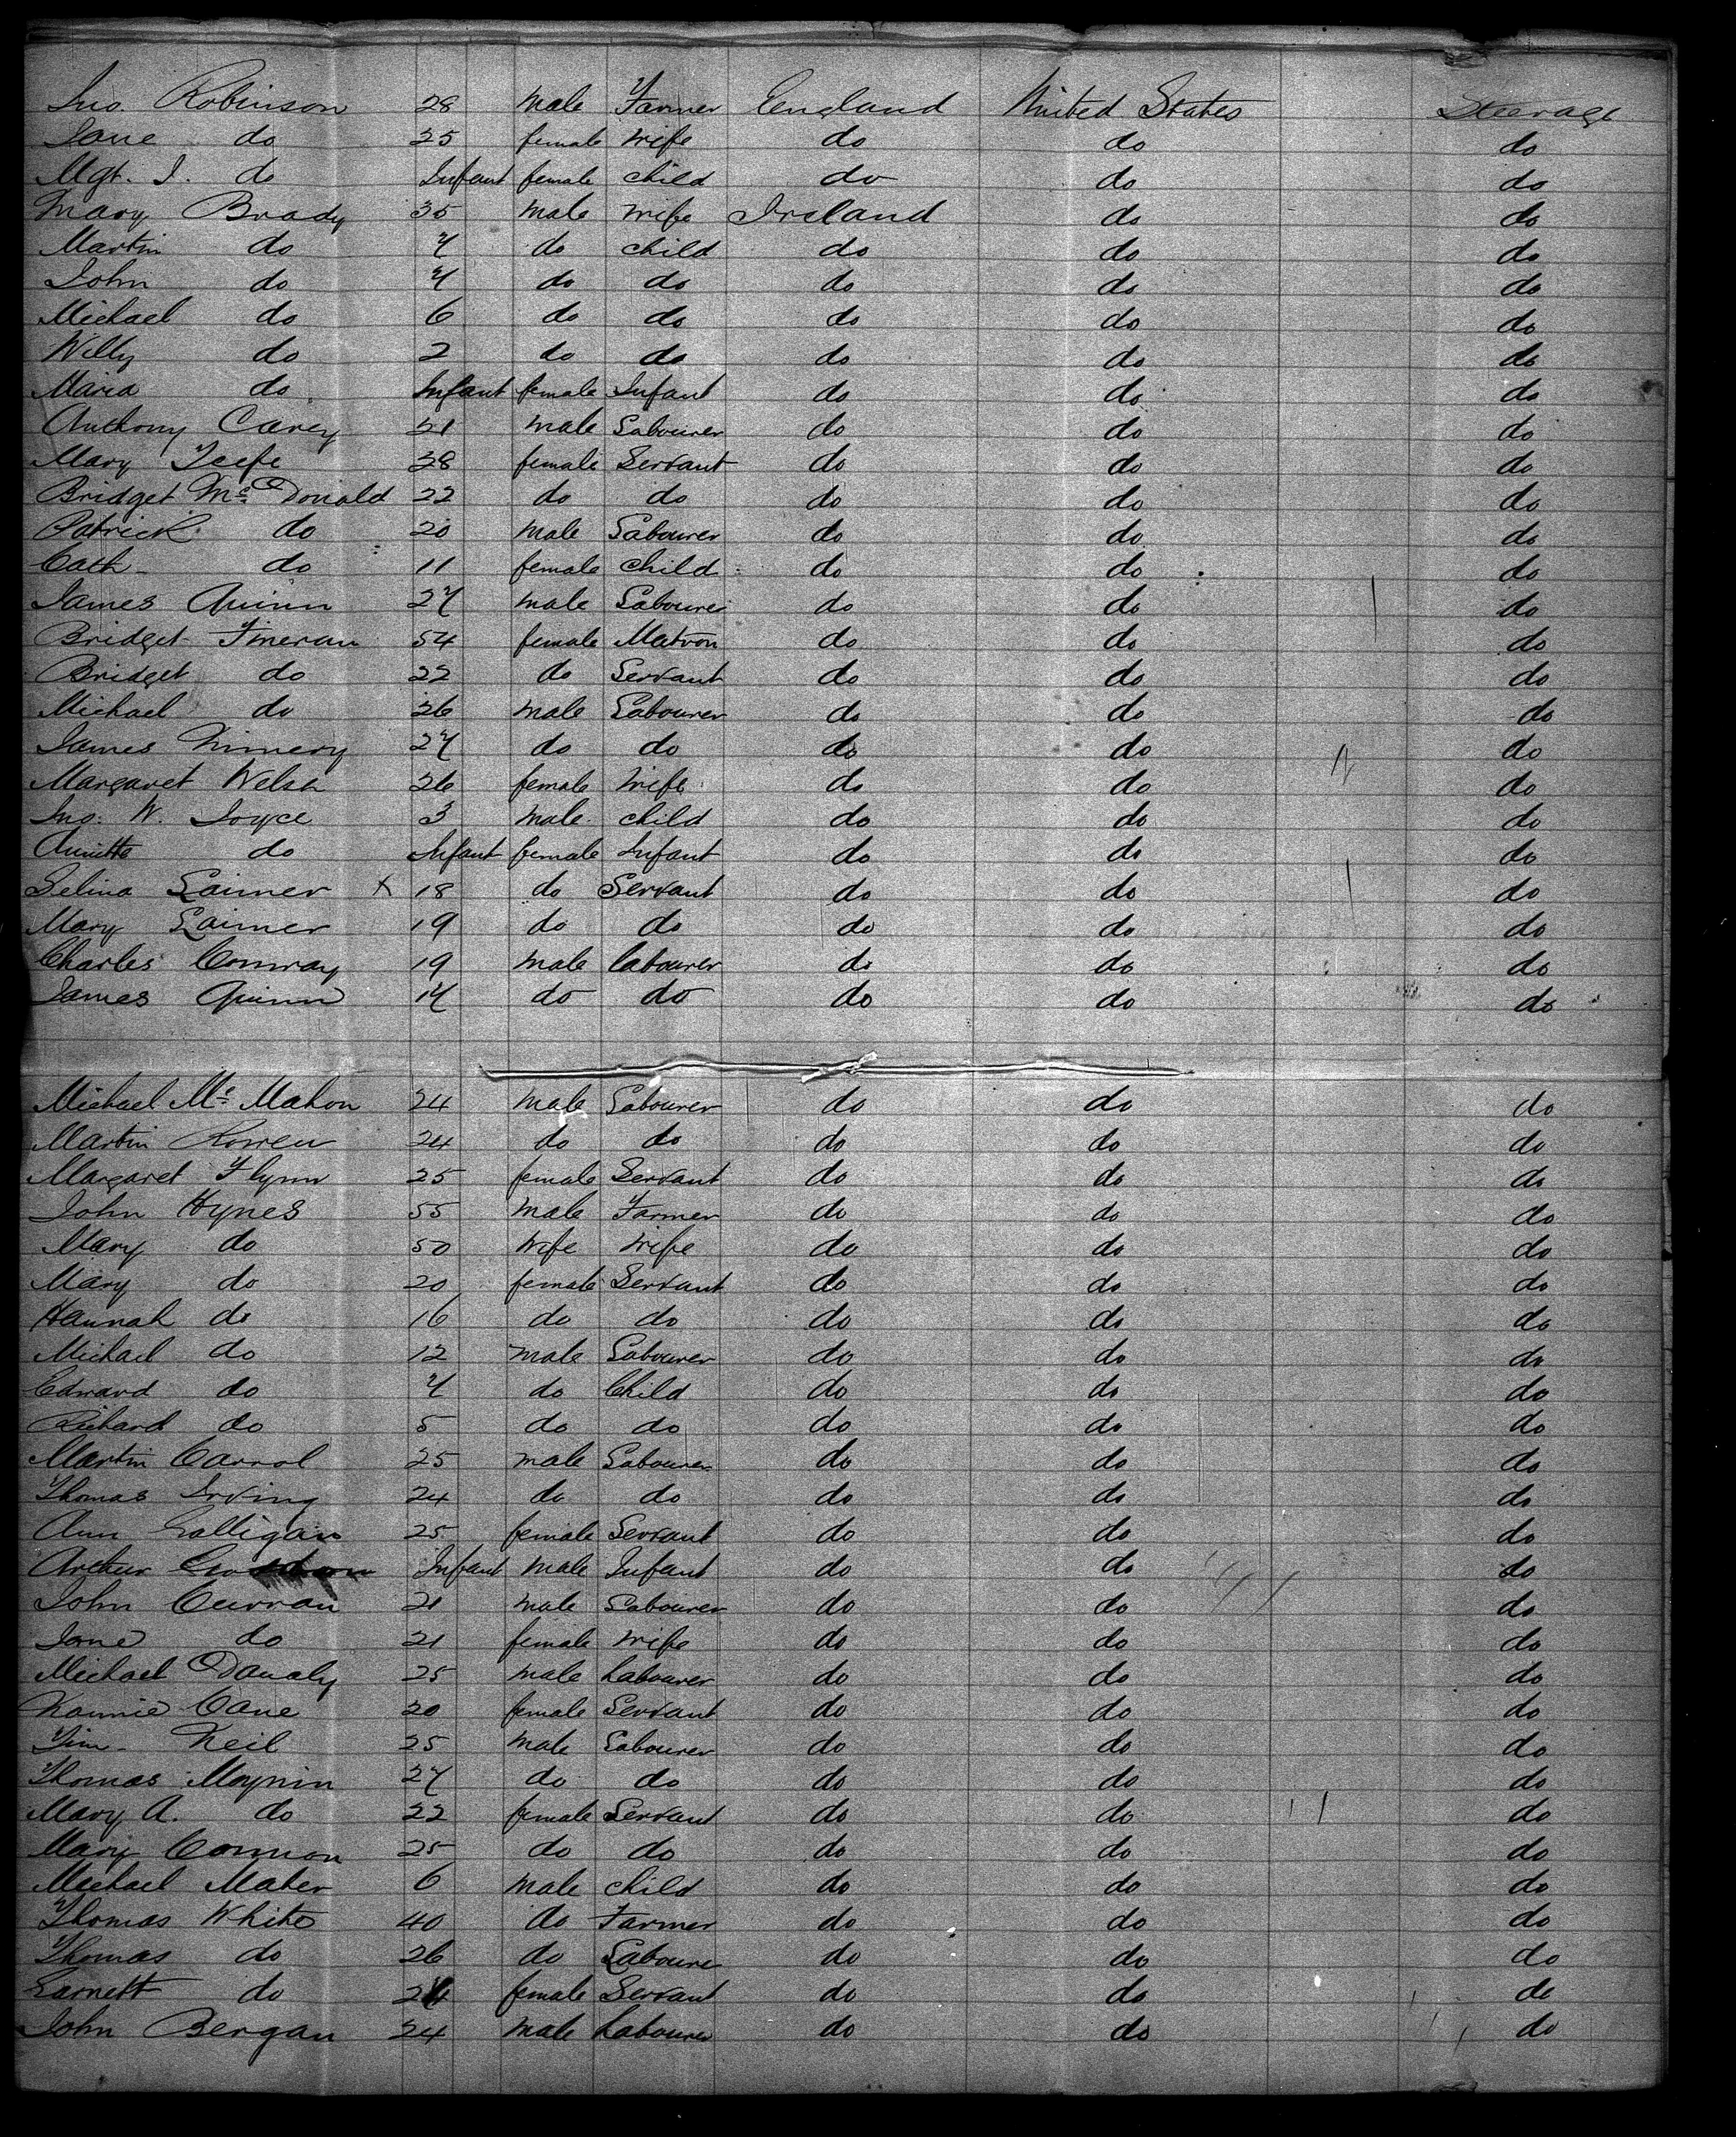 Jno. Robinson 28 Male Farmer England United States Steerage
Jane do 25 female Wife do do do
Mgt. J. do Infant female child do do do
Mary Brady 35 Male Wife Ireland do do
Martin do 7 do child do do do
John do 7 do do do do do
Michael do 6 do do do do do
Willy do 2 do do do do do
Maria do Infant female Infant do do do
Anthony Carey 21 Male Labourer do do do
Mary 28 female Servant do do do
Bridget McDonald 22 do do do do do
Patrick do 20 male Labourer do do do
Cath- do 11 female child do do do
James Quinn 27 male Labourer do do do
Bridget Fineran 54 female Matron do do do
Bridget do 22 do Servant do do do
Michael do 26 male Labourer do do do
James 27 do do do do do
Margaret Welsh 26 female Wife do do do
Jno. W. Joyce 3 Male child do do do
do Infant female Infant do do do
Selina Laimer X 18 do Servant do do do
Mary Laimer 19 do do do do do
Charles Conway 19 Male labourer do do do
James Quinn 17 do do do do do
Michael McMahon 24 Male Labourer do do do
Martin 24 do do do do do
Margaret Flynn 25 female Servant do do do
John Hynes 55 Male Farmer do do do
Mary do 50 Wife Wife do do do
Mary do 20 female Servant do do do
Hannah do 16 do do do do do
Michael do 12 male Labourer do do do
Edward do 7 do Child do do do
Richard do 5 do do do do do
Martin Carrol 25 male Labourer do do do
Thomas Irving 24 do do do do do
Ann Galligan 25 female Servant do do do
Arthur Infant Male Infant do do do
John Curran 21 male Labourer do do do
Jane do 21 female Wife do do do
Michael Danaly 25 male Labourer do do do
Cane 20 female Servant do do do
Tim- Neil 25 Male Labourer do do do
Thomas Moynin 27 do do do do do
Mary A. do 22 female Servant do do do
Mary Connon 25 do do do do do
Michael Maher 6 Male child do do do
Thomas White 40 do Farmer do do do
Thomas do 26 do Labourer do do do
do female Servant do do do
John Bergan 24 Male Labourer do do do